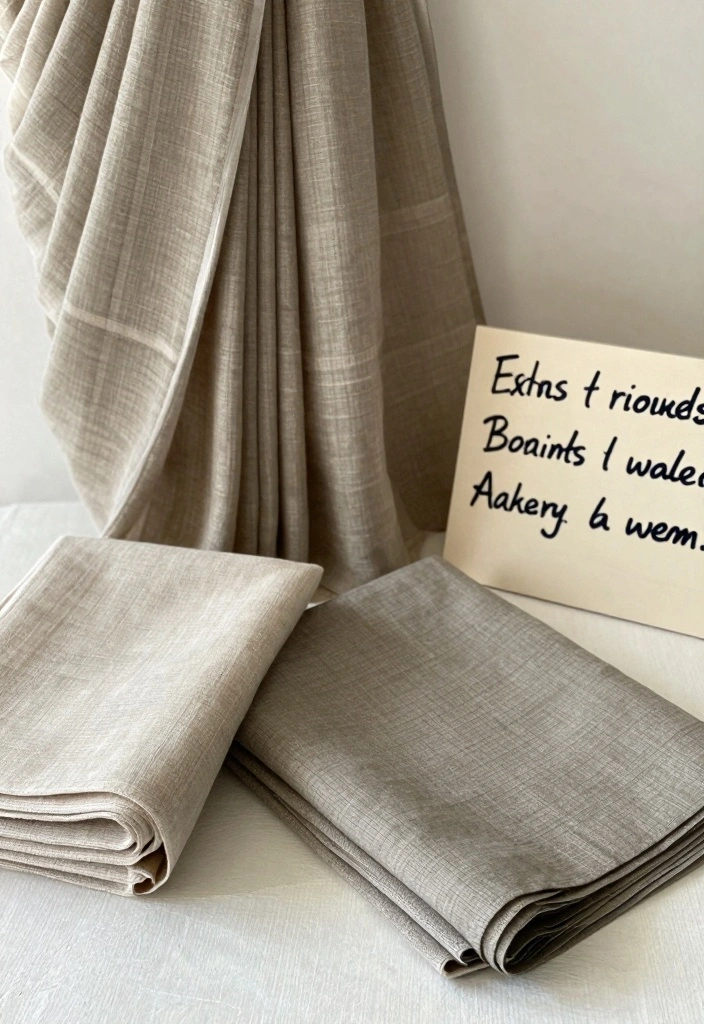 Extns t riounds
Boaints l waled
Aakery b wem.